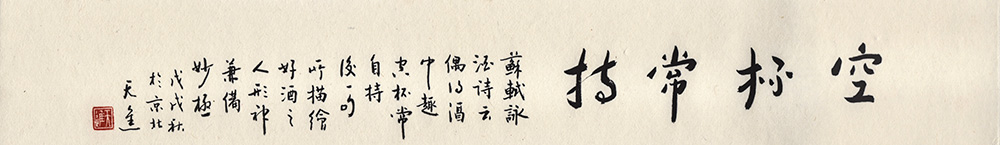 空杯常持
蘇軾詠
酒诗云
偶得酒
中趣
空杯常
自持
後一句
所描繪
好酒之
人形神
兼備
妙極
戊戌秋
於京北
天